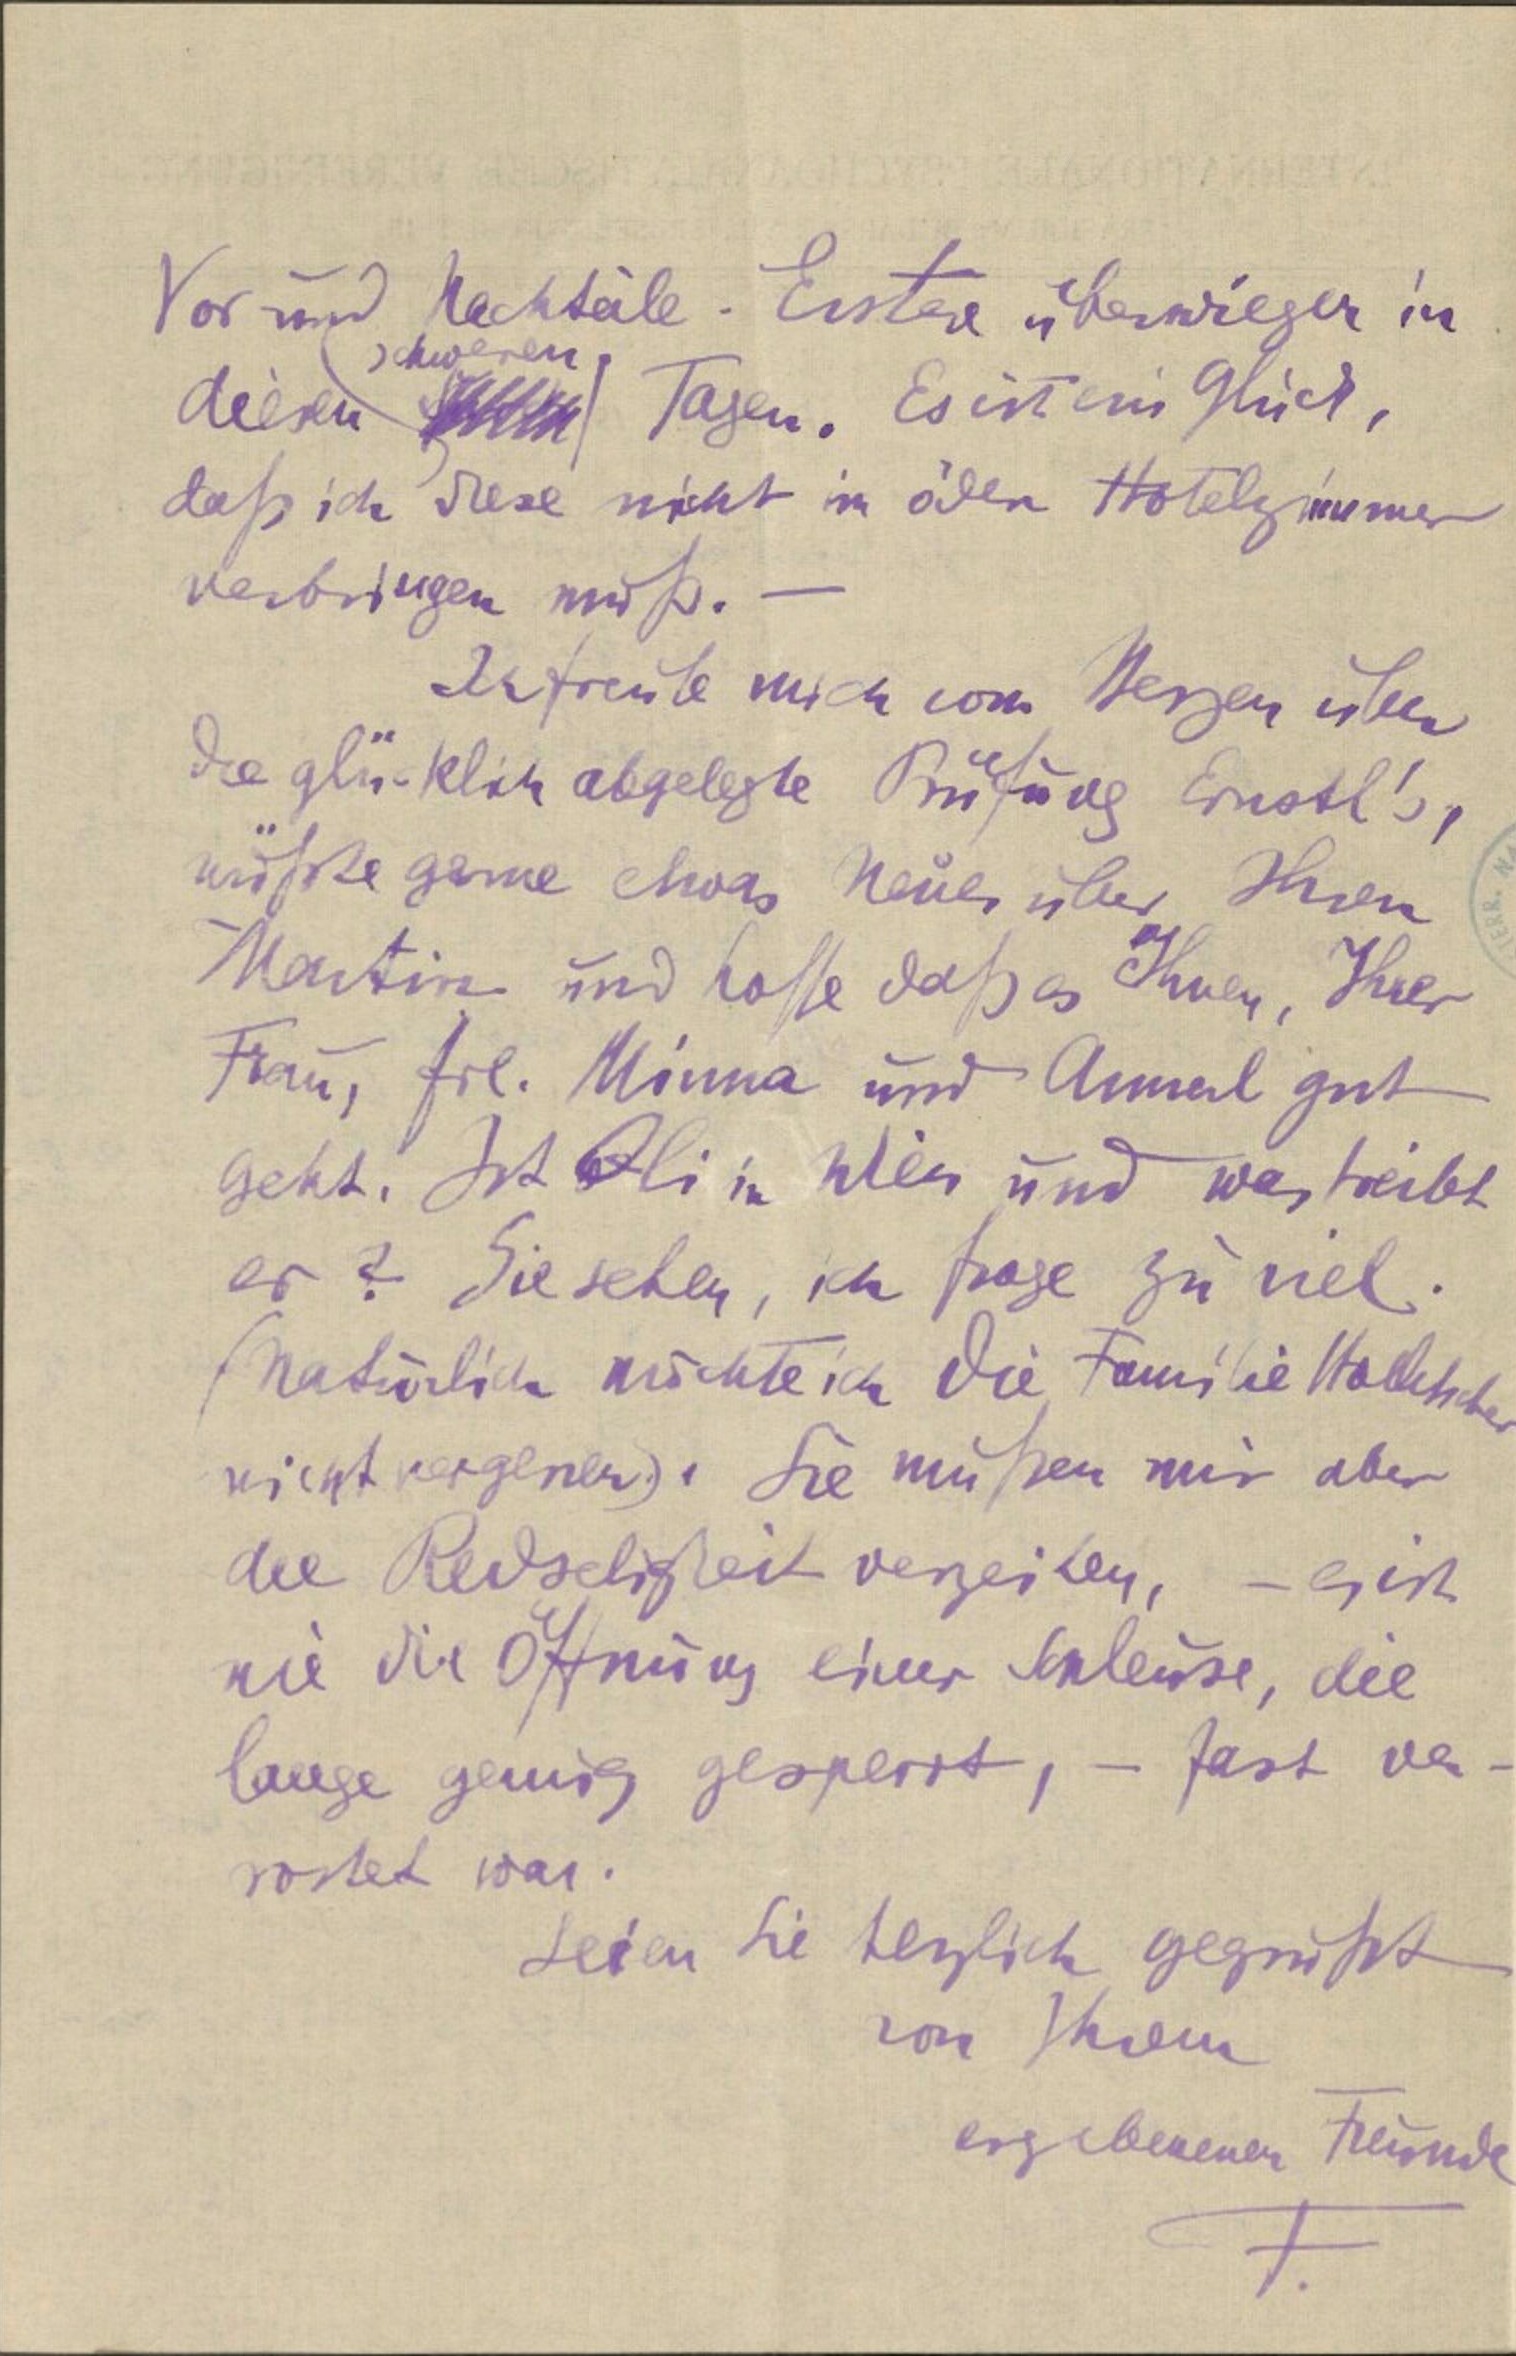 Vor und Nachteile. Erstere überwiegen in
schweren
diesen Tagen. Es ist ein Glück,
daß ich diese nicht in öden Hotelzimmer
verbringen muß. —
Ich freute mich vom Herzen über
die glücklich abgelegte Prüfung Ernstl's,
wüßte gerne etwas Neues über Ihren
Martin und hoffe daß es Ihnen, Ihrer
Frau, Frl. Minna und Annerl gut
geht. Ist Oli in Wien und was treibt
er? Sie sehen, ich frage zu viel.
(Natürlich möchte ich die Familie
nicht vergessen). Sie müßen mir aber
die Redseligkeit verzeihen, — es ist
wie die Öffnung einer Schleuse, die
lange genug gesperrt, — fast ver-
rostet war.
Seien Sie herzlich gegrüßt
von Ihrem
ergebenenen Freunde
F.